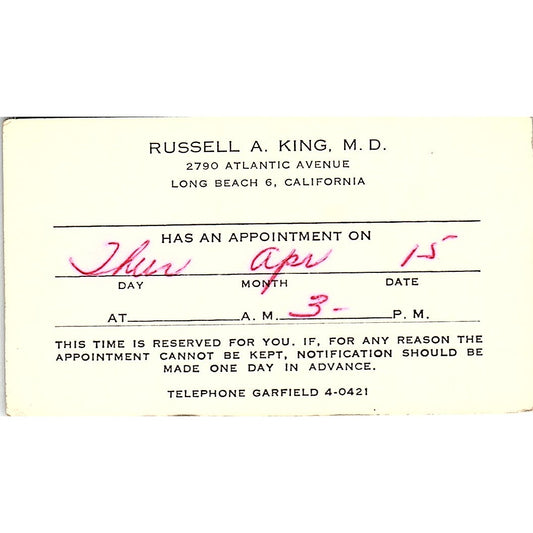 RUSSELL A. KING, M.D.
2790 ATLANTIC AVENUE
LONG BEACH 6, CALIFORNIA
HAS AN APPOINTMENT ON
Thur Apr 15
DAY MONTH DATE
AT A.M. 3- P.M.
THIS TIME IS RESERVED FOR YOU. IF, FOR ANY REASON THE
APPOINTMENT CANNOT BE KEPT, NOTIFICATION SHOULD BE
MADE ONE DAY IN ADVANCE.
TELEPHONE GARFIELD 4-0421